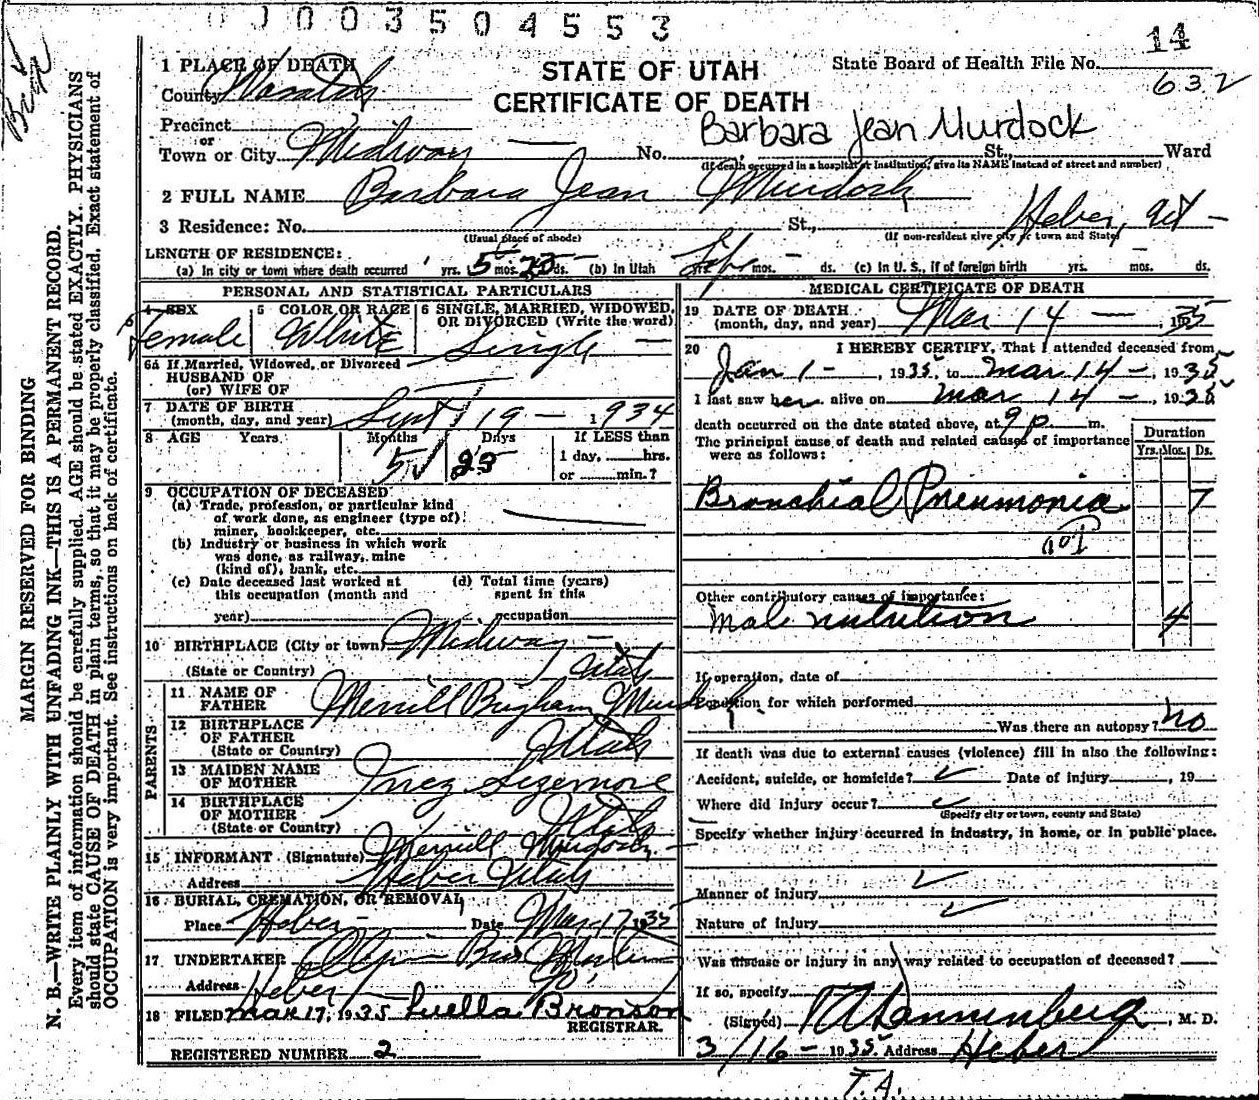 0003504553
14
1 PLACE OF DEATH
STATE OF UTAH
State Board of Health File No.
632
County Wasatch
CERTIFICATE OF DEATH
Precinct
Barbara Jean Murdock
or
Town or City Midway No. St., Ward
(If death occurred in a hospital or institution, give its NAME instead of street and number)
2 FULL NAME Barbara Jean Murdock
3 Residence: No. St., Heber, Ut
(Usual place of abode) (If non-resident give city or town and State)
LENGTH OF RESIDENCE:
(a) In city or town where death occurred yrs. 5 mos. 25 ds. (b) In Utah Life yrs. mos. ds. (c) In U. S., if of foreign birth yrs. mos. ds.
PERSONAL AND STATISTICAL PARTICULARS
4 SEX Female
5 COLOR OR RACE White
6 SINGLE, MARRIED, WIDOWED, OR DIVORCED (Write the word) Single
6a If Married, Widowed, or Divorced
HUSBAND OF
(or) WIFE OF
7 DATE OF BIRTH
(month, day, and year) Sept 19 - 1934
8 AGE Years Months 5 Days 25 If LESS than
1 day, hrs.
or min.?
9 OCCUPATION OF DECEASED
(a) Trade, profession, or particular kind
of work done, as engineer (type of)
miner, bookkeeper, etc.
(b) Industry or business in which work
was done, as railway, mine
(kind of), bank, etc.
(c) Date deceased last worked at
this occupation (month and
year)
(d) Total time (years)
spent in this
occupation
10 BIRTHPLACE (City or town) Midway
(State or Country) Utah
PARENTS
11 NAME OF
FATHER Merrill Brigham Murdock
12 BIRTHPLACE
OF FATHER
(State or Country) Utah
13 MAIDEN NAME
OF MOTHER Inez Sizemore
14 BIRTHPLACE
OF MOTHER
(State or Country) Utah
15 INFORMANT (Signature) Merrill Murdock
Address Heber Utah
16 BURIAL, CREMATION, OR REMOVAL
Place Heber Date Mar 17 1935
17 UNDERTAKER
Address Heber
18 FILED Mar 17, 1935 Luella Bronson
REGISTRAR.
REGISTERED NUMBER 2
MEDICAL CERTIFICATE OF DEATH
19 DATE OF DEATH
(month, day, and year) Mar 14 - , 1935
20 I HEREBY CERTIFY, That I attended deceased from
Jan 1 - , 1935 to Mar 14 - , 1935
I last saw her alive on Mar 14 - , 1935
death occurred on the date stated above, at 9 p m.
The principal cause of death and related causes of importance
were as follows:
Duration
Yrs. Mos. Ds.
Bronchial Pneumonia 7
Other contributory causes of importance:
Mal nutrition 4
If operation, date of
Condition for which performed
Was there an autopsy? no
If death was due to external causes (violence) fill in also the following:
Accident, suicide, or homicide? Date of injury , 19
Where did injury occur?
(Specify city or town, county and State)
Specify whether injury occurred in industry, in home, or in public place.
Manner of injury
Nature of injury
Was disease or injury in any way related to occupation of deceased?
If so, specify
(Signed) , M. D.
3/16 - 1935 Address Heber
T.A.
MARGIN RESERVED FOR BINDING
N. B.—WRITE PLAINLY WITH UNFADING INK—THIS IS A PERMANENT RECORD.
Every item of information should be carefully supplied. AGE should be stated EXACTLY. PHYSICIANS
should state CAUSE OF DEATH in plain terms, so that it may be properly classified. Exact statement of
OCCUPATION is very important. See instructions on back of certificate.